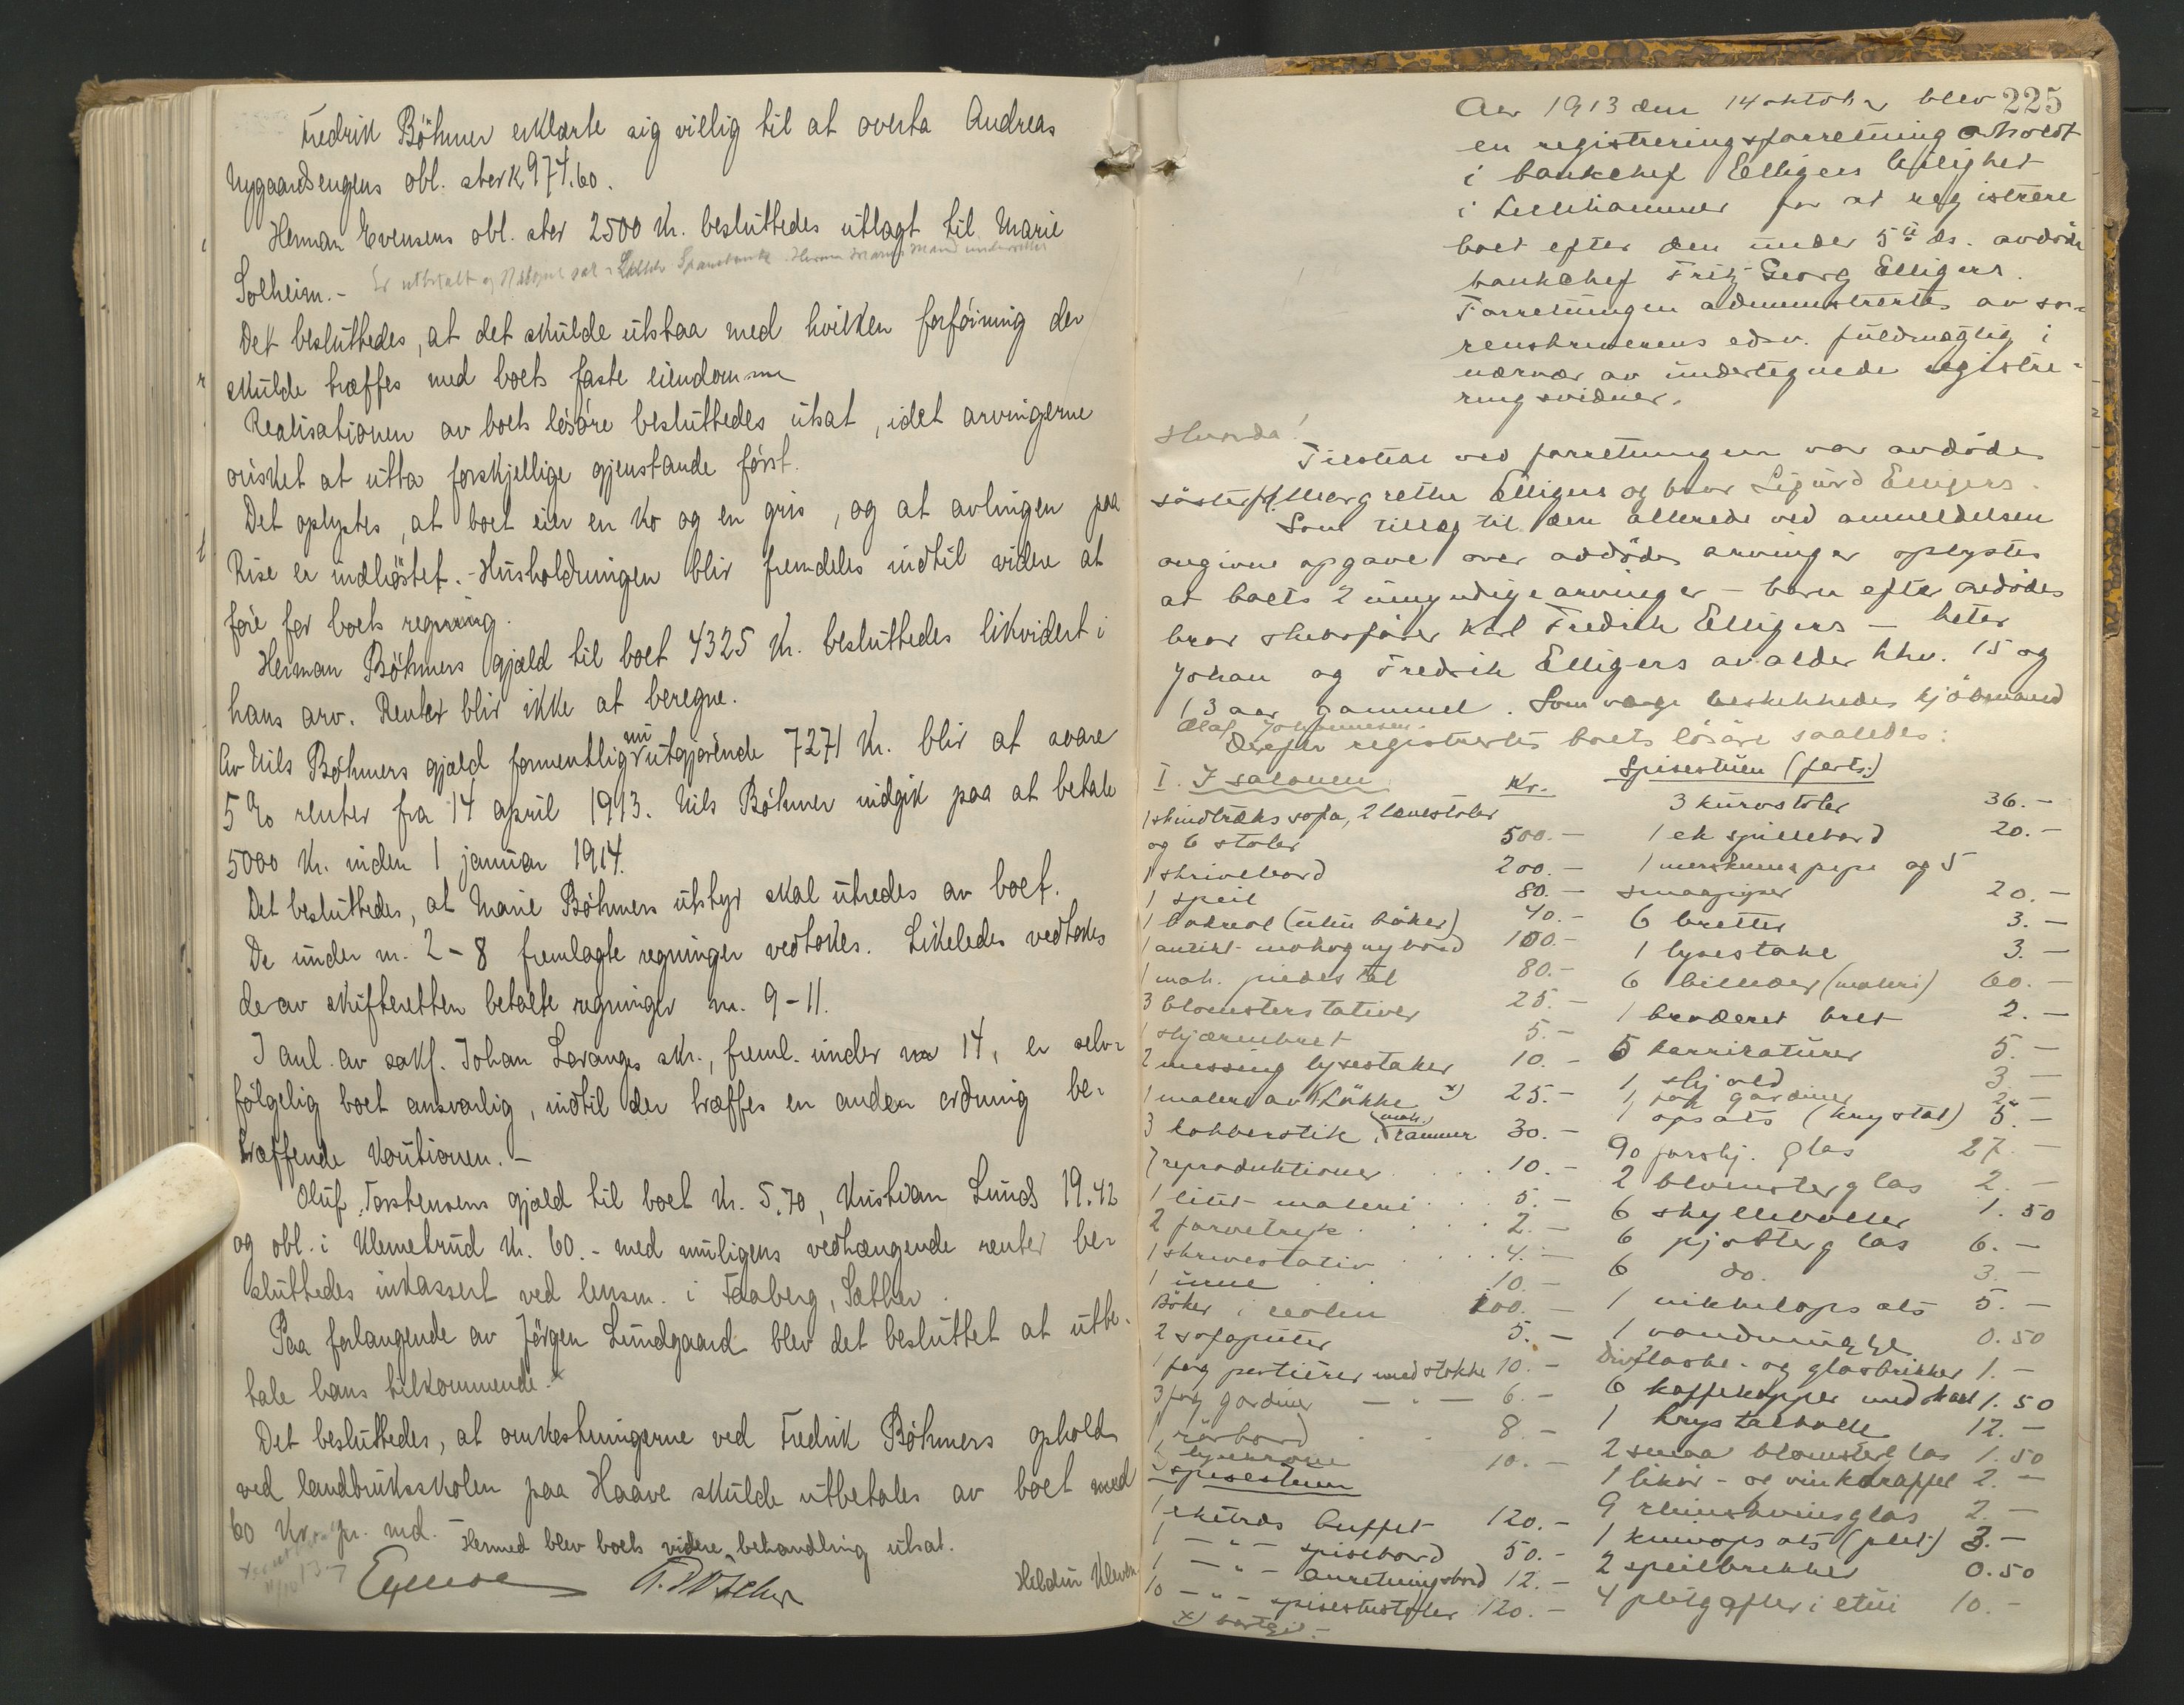 Fredrik Böhmer erklærte sig villig til at overta Andreas
Nygaardsengens obl. stor k 974.60.
Herman Evensens obl. stor 2500 kr. besluttedes utlagt til Marie
Solheim. - Er utbetalt og
Det besluttedes, at det skulde utstaa med hvilken forföining der
skulde træffes med boets faste eiendomme
Realisationen av boets lösöre besluttedes utsat, idet arvingerne
önsket at utta forskjellige gjenstande först.
Det oplystes, at boet eier en ko og en gris, og at avlingen paa
Rise er indhöstet. - Husholdningen blir fremdeles indtil videre at
före for boets regning.
Herman Böhmers gjæld til boet 4325 kr. besluttedes likvidert i
hans arv. Renter blir ikke at beregne.
Av Nils Böhmers gjæld formentlig nu utgjörende 7271 kr. blir at svare
5 % renter fra 14 april 1913. Nils Böhmer indgik paa at betale
5000 kr. inden 1 januar 1914.
Det besluttedes, at Marie Böhmers utstyr skal utredes av boet.
De under nr. 2-8 fremlagte regninger vedtokes. Likeledes vedtokes
de av skifteretten betalte regninger nr. 9-11.
I anl. av sakf. Johan Loranges skr., freml. under nr 14, er selv-
fölgelig boet ansvarlig, indtil der træffes en anden ordning be-
træffende kautionen. -
Oluf Torstensens gjæld til boet kr. 5.70, Kristian Lunds 19.42
og obl. i Klemetrud kr. 60.- med muligens vedhængende renter be-
sluttedes inkassert ved lensm. i Faaberg, Sæther.
Paa forlangende av Jörgen Lundgaard blev det besluttet at utbe-
tale hans tilkommende. x
Det besluttedes, at omkostningerne ved Fredrik Böhmers ophold
ved landbruksskolen paa Haave skulde utbetales av boet med
60 kr. pr. md. - Hermed blev boets videre behandling utsat.
225
Aar 1913 den 14 oktober blev
en registreringsforretning avholdt
i bankchef Elligers leilighet
i Lillehammer for at registrere
boet efter den under 5te ds. avdöde
bankchef Fritz Georg Elligers.
Forretningen administrertes av so-
renskriverens edsv. fuldmægtig i
nærvær av undertegnede registre-
ringsvidner.
Hvorda!
Tilstede ved forretningen var avdödes
söster frk. Margrethe Elligers og bror Sigurd Elligers.
Som tillæg til den allerede ved anmeldelsen
angivne opgave over avdödes arvinger oplystes
at boets 2 umyndige arvinger - barn efter avdödes
bror skibsförer Karl Fredrik Elligers - heter
Johan og Fredrik Elligers av alder hhv. 15 og
13 aar gammel. Som verge beskikkedes kjöbmand
Olaf Johannesen.
Derefter registrertes boets lösöre saaledes:
I. I salonen Kr.
1 skindtræks sofa, 2 lænestoler
og 6 stoler 500.-
1 skrivebord 200.-
1 speil 80.-
1 bokreol (uten böker) 40.-
1 antikt mahogny bord 100.-
1 mah. piedestal 80.-
3 blomsterstativer 25.-
1 skjærmbret 5.-
2 messing lysestaker 10.-
1 maleri av Lökke x) 25.-
3 kobberstik i (mah.) rammer 30.-
7 reproduktioner 10.-
1 litet maleri 5.-
2 farvetryk 2.-
1 skrivestativ 4.-
1 urne 10.-
Böker i reolen 200.-
2 sofaputer 5.-
1 fag portierer med stokke 10.-
3 fag gardiner - " - 6.-
1 rörbord 8.-
1 lysekrone 10.-
Spisestuen
1 eketræs buffet 120.-
1 - " - spisebord 50.-
1 - " - anretningsbord 12.-
10 - " - spisestustoler 120.-
Spisestuen (forts.)
3 kurvstoler 36.-
1 ek spillebord 20.-
1 merskumspipe og 5
smaapiper 20.-
6 bretter 3.-
1 lysestake 3.-
6 billeder (maleri) 60.-
1 broderet bret 2.-
5 karrikaturer 5.-
1 skjold 3.-
1 fag gardiner 2.-
1 opsats (krystal) 5.-
90 forskj. glas 27.-
2 blomsterglas 2.-
6 skylleboller 1.50
6 pjolterglas 6.-
6 do. 3.-
1 nikkelopsats 5.-
1 vandmugge 0.50
Div. flaske- og glasbrikker 1.-
6 kaffekopper med skaal 1.50
1 krystalbolle 12.-
2 smaa blomsterglas 1.50
1 likör- og vinkaraffel 2.-
9 rhinskvinsglas 2.-
1 kniveopsats (plet) 3.-
2 speilbrikker 0.50
4 pletgafler i etui 10.-